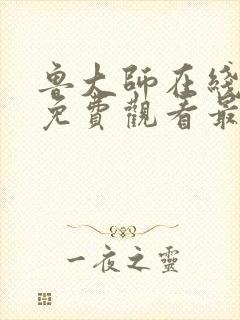 魯大師在綫
免費觀看最
一夜之靈